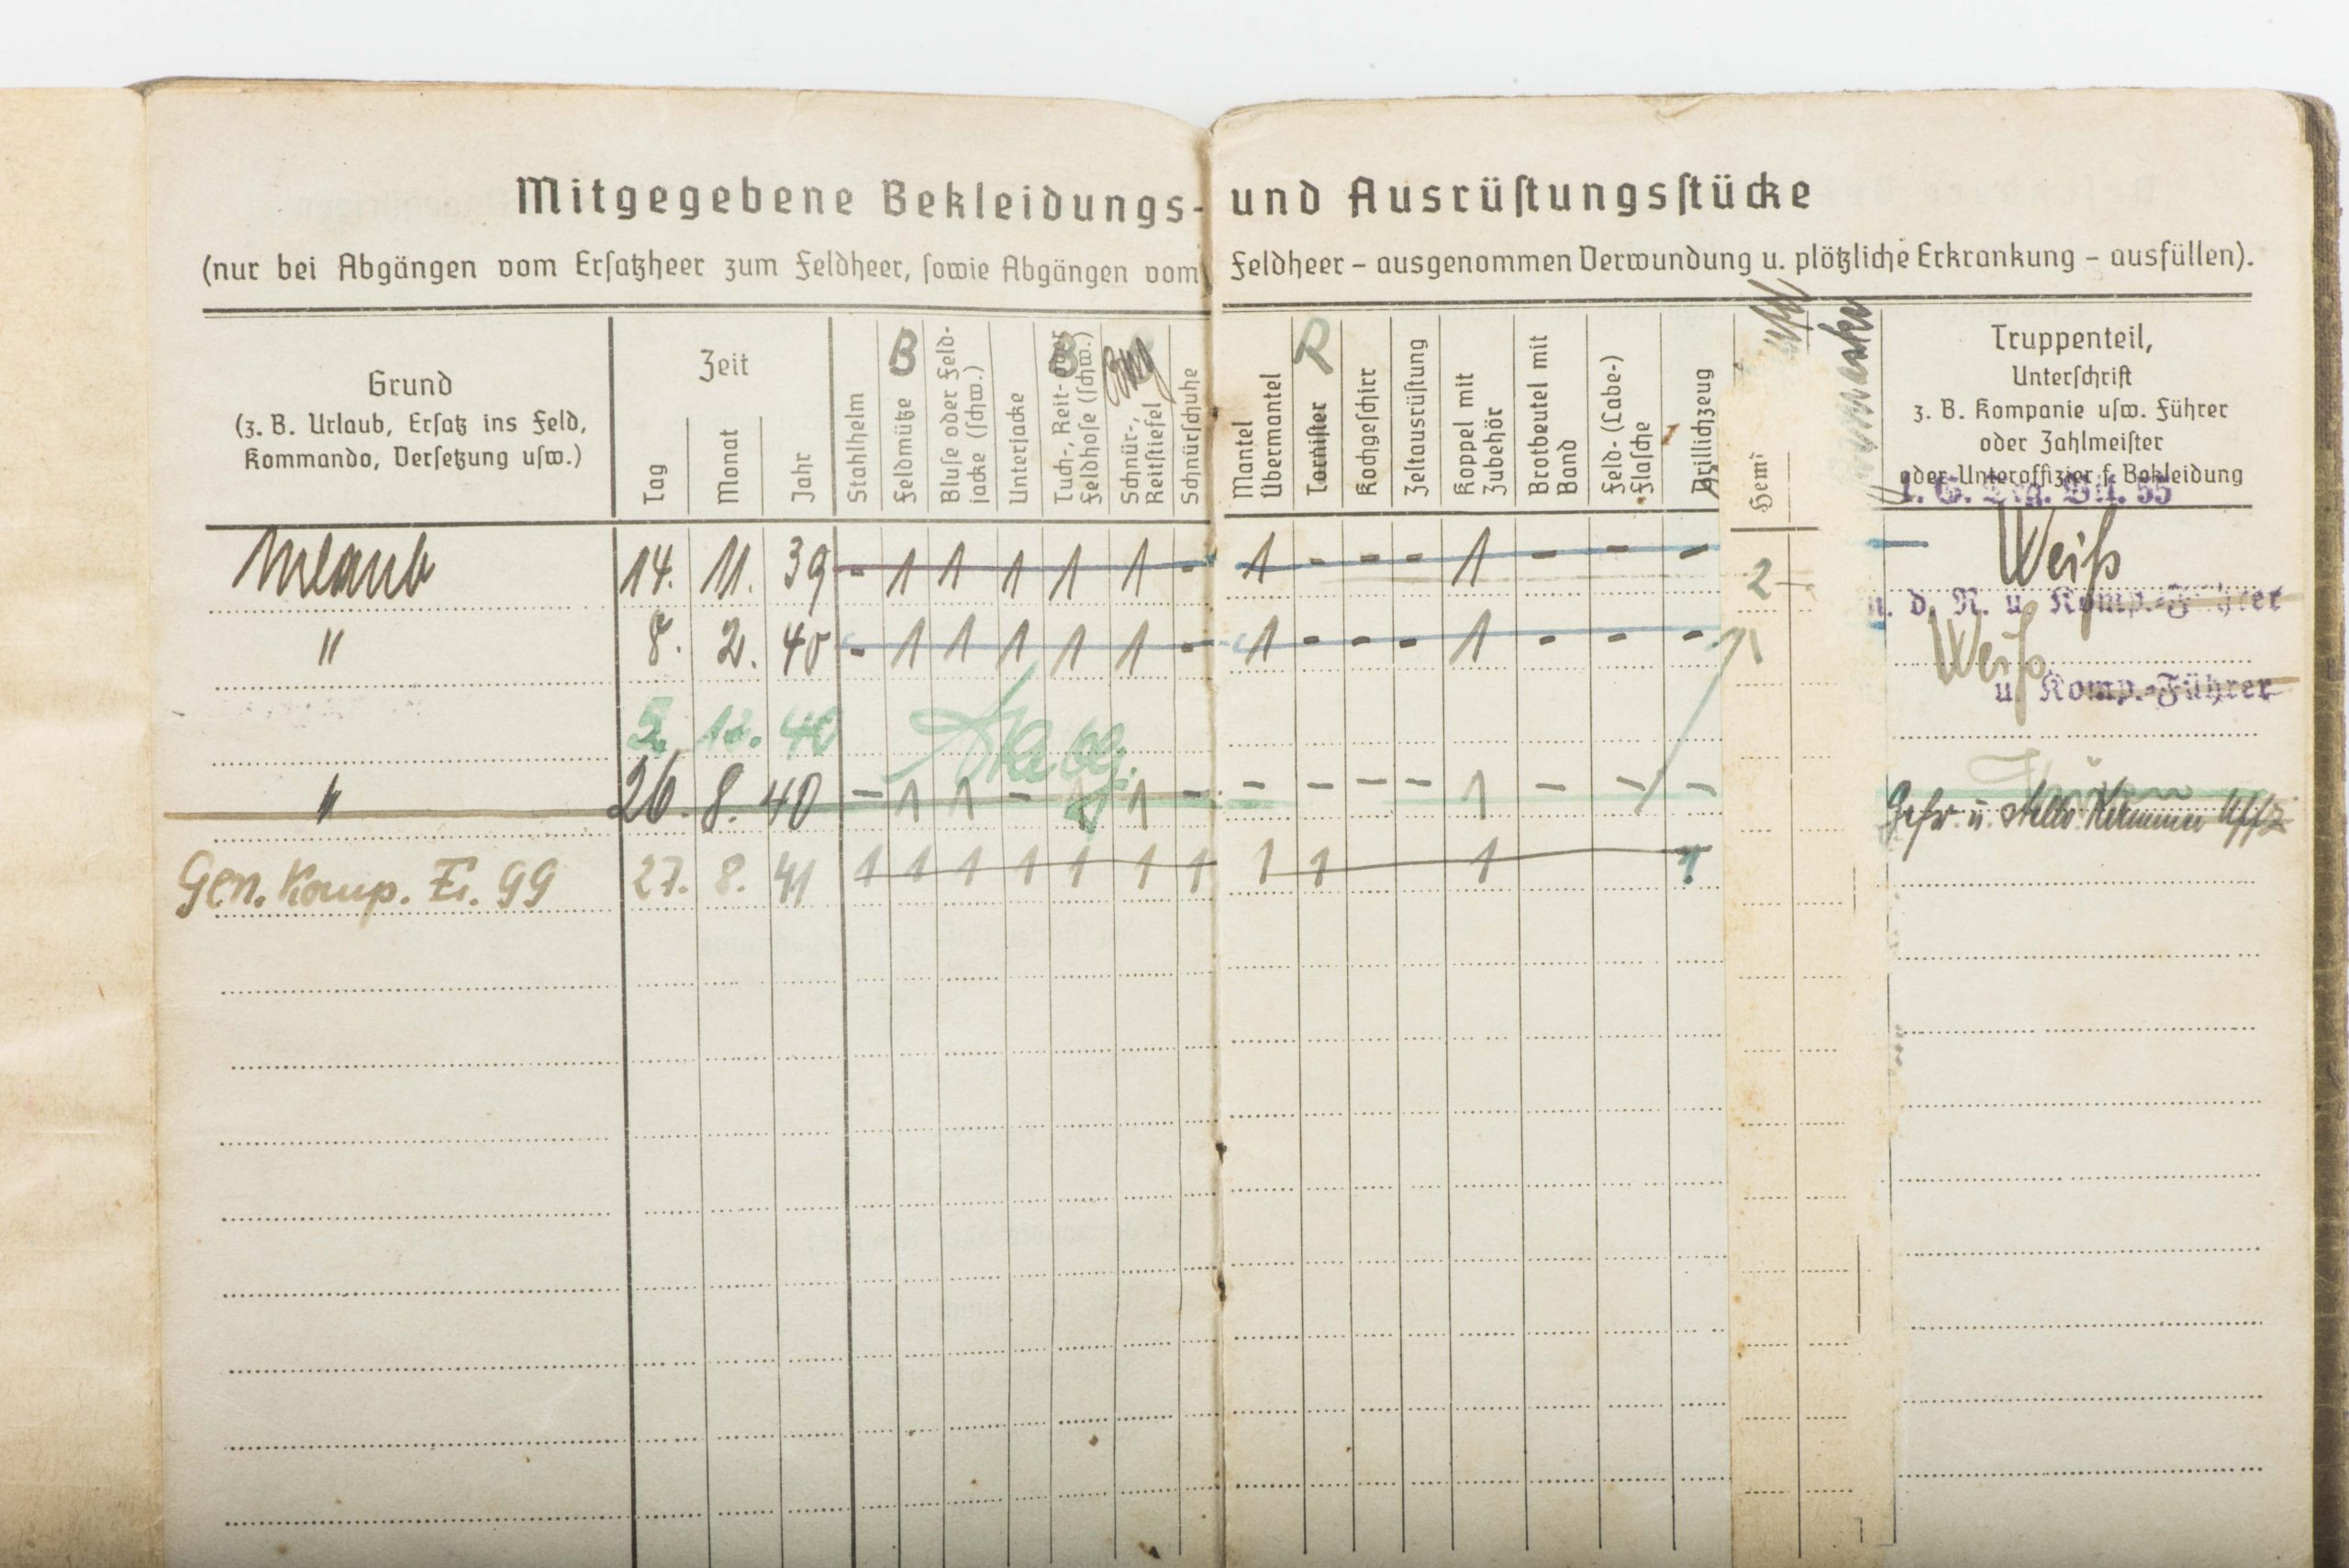 Mitgegebene Bekleidungs- und Ausrüstungsstücke
(nur bei Abgängen vom Ersatzheer zum Feldheer, sowie Abgängen vom Feldheer – ausgenommen Verwundung u. plötzliche Erkrankung – ausfüllen).
Grund
(z. B. Urlaub, Ersatz ins Feld,
Kommando, Versetzung usw.)
Zeit
Tag
Monat
Jahr
Stahlhelm
B
Feldmütze
Bluse oder Feld-
jacke (schw.)
Unterjacke
Tuch-, Reit- oder
Feldhose (schw.)
Schnür-,
Reitstiefel
Schnürschuhe
Mantel
Übermantel
R
Tornister
Kochgeschirr
Zeltausrüstung
Koppel mit
Zubehör
Brotbeutel mit
Band
Feld- (Labe-)
flasche
Drillichzeug
Hem
Truppenteil,
Unterschrift
z. B. Kompanie usw. Führer
oder Zahlmeister
oder Unteroffizier f. Bekleidung
Urlaub 14. 11. 39 - 1 1 1 1 1 - 1 - - - 1 - - - 2 Weiß
d. R. u. Komp.-Führer
" 8. 2. 40 - 1 1 1 1 1 - 1 - - - 1 - - - Weiß
u. Komp.-Führer
5. 12. 40
" 26. 8. 40 - 1 1 - 1 1 - - - - - 1 - - - Gefr. u. Uffz
Gen. Komp. 99 27. 8. 41 1 1 1 1 1 1 1 1 1 1 1